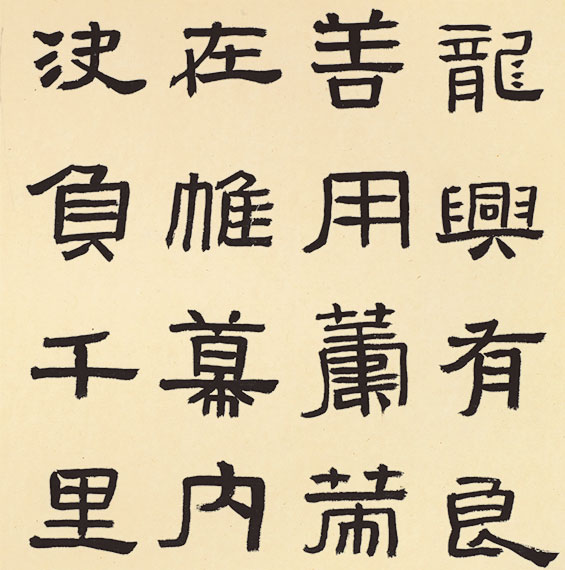 龍興有良
善用籌策
在帷幕內
決負千里